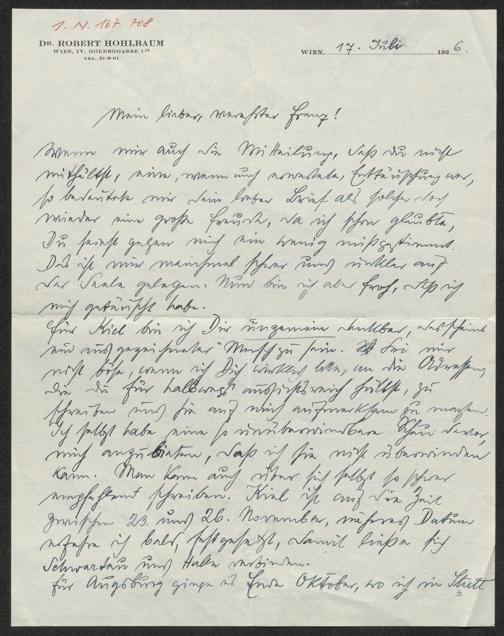 I. N. 167.708
DR. ROBERT HOHLBAUM
WIEN, IV. GOLDEGGASSE 1
TEL. 51-8-01
WIEN, 17. Juli 1926.
Mein lieber, verehrter Franz!
Wenn mir auch die Mitteilung, daß du nicht
mithältst, eine, wenn auch erwartete, Enttäuschung war,
so bedeutete mir dein lieber Brief als solcher doch
wieder eine große Freude, da ich schon glaubte,
Du seiest gegen mich ein wenig mißgestimmt.
Das ist mir manchmal schwer und unklar auf
der Seele gelegen. Nun bin ich aber froh, daß ich
mich getäuscht habe.
Für Kiel bin ich Dir ungemein dankbar, das scheint
ein ausgezeichneter Mensch zu sein. Sei mir
nicht böse, wenn ich Dich bitte, an die Adressen,
die du für halbwegs aussichtsreich hältst, zu
schreiben und sie auf mich aufmerksam zu machen.
Ich selbst habe eine so unüberwindbare Scheu davor,
mich anzubieten, daß ich sie nicht überwinden
kann. Man kann auch über sich selbst so schwer
empfehlend schreiben. Kiel ist auf die Zeit
zwischen 23. und 26. November, näheres Datum
erfahre ich bald, festgesetzt, damit ließe sich
Schwartau und Halle verbinden.
Für Augsburg ginge es Ende Oktober, wo ich in Stutt